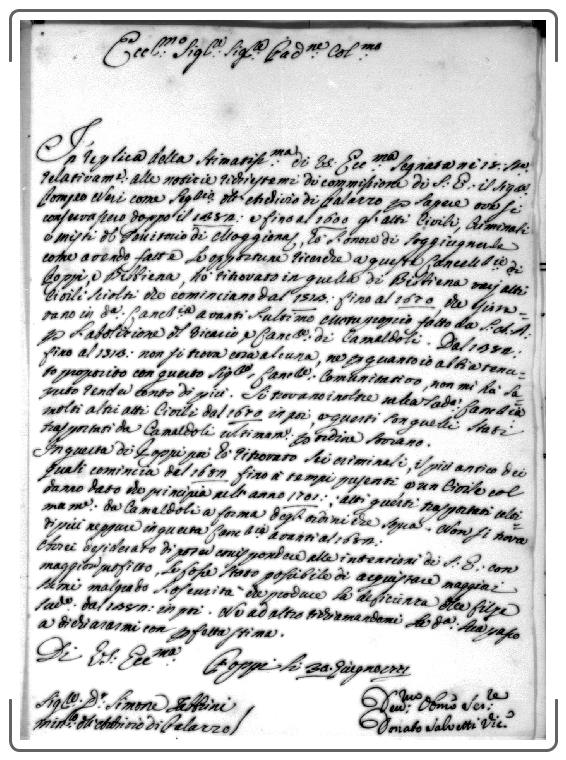 Ecc.mo Sig.re Sig.re Pad.ne Col.mo
In replica della Stimatiss.ma di VS. Ecc.ma Segnata ne 18:
relativam.e alle notizie richiestemi di commissione di S. E: il Sig.re
Pompeo Neri come Sig.re Aud.re di Palazzo p Sapere ove si
conservassero doppo il 1382: e fino al 1600 gl'altri Civili, Criminali
o misti del Territorio di Moggiona, ho l'onore di Soggiugnerle
come avendo fatte le opportune ricerche a queste Cancell.rie di
Poppi, e Bibbiena, ho ritrovato in quella di Bibbiena varj atti
Civili sciolti che cominciano dal 1513: fino al 1670,
in d.a Canc.ria avanti l'ultimo motuproprio fatto da S: A: R:
p l'abolizione del Vicario e Canc.re di Camaldoli. Dal 1382:
fino al 1513: non si trova cosa alcuna, ne p quanto io abbia tenu-
to proposito con questo Sig.re Canc.re Comunitativo, non mi ha sa-
puto render conto di piu. Si trovano inoltre nella sud.a Canc.ria
molti altri atti Civili dal 1670 in poi, e questi son quelli stati
trasportati da Camaldoli ultimam.e p ordine Sovrano.
In questa di Poppi poi ho ritrovato sei criminali, il più antico dei
quali comincia dal 1687 fino a tempi presenti e un Civile col
danno dato che principia nell'anno 1701: altri questi trasportati ulti-
mam.e da Camaldoli a forma degl'ordini che sopra. Non si trova
di più neppure in questa Canc.ria avanti al 1687:
Avrei desiderato di poter corrispondere alle intenzioni di S. E: con
maggior profitto, se fosse stato possibile di acquistare maggiori
lumi malgrado l'oscurità che produce la deficienza delle filze
sud.e dal 1382: in poi. Ne ad altro richiamandomi la d.a Sua passo
a dichiararmi con pfetta stima.
Di VS: Ecc.ma
Poppi li 30 Giugno
Sig.re D.r Simone
min.e di Palazzo
Dev.mo Obb.mo Ser.re
Donato Salvetti Vic.o